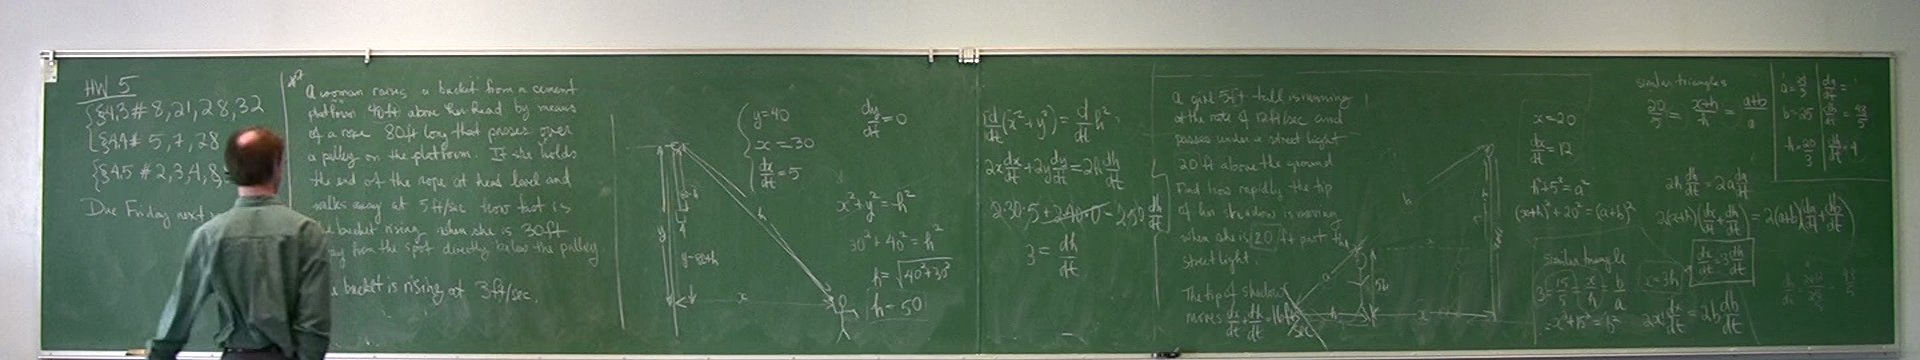 HW 5
§4.3 # 8, 21, 28, 32
§4.4 # 5, 7, 28
§4.5 # 2, 3, 4, 8,
Due Friday next
A woman raises a bucket from a cement
platform 40ft above her head by means
of a rope 80ft long that passes over
a pulley on the platform. If she holds
the end of the rope at head level and
walks away at 5ft/sec how fast is
bucket rising when she is 30ft
from the spot directly below the pulley
bucket is rising at 3ft/sec.
y
x
h
y=40
x=30
dx/dt=5
dy/dt=0
x²+y²=h²
30²+40²=h²
h=√40²+30²
h=50
d/dt(x²+y²)=d/dt h²
2x dx/dt+2y dy/dt=2h dh/dt
2·30·5+2·40·0=2·50 dh/dt
3=dh/dt
A girl 5ft tall is running
at the rate of 12ft/sec and
passes under a street light
20ft above the ground
Find how rapidly the tip
of her shadow is moving
when she is 20ft past the
street light.
The tip of shadow
moves dx/dt+dh/dt=16ft/sec
b
a
h
x
x=20
dx/dt=12
h²+5²=a²
(x+h)²+20²=(a+b)²
similar triangle
3=15/5=x/h=b/a
x=3h
similar triangles
20/5=x+h/h=a+b/a
2h dh/dt=2a da/dt
2(x+h)(dx/dt+dh/dt)=2(a+b)(da/dt+db/dt)
dx/dt=3dh/dt
b=25
h=20/3
dh/dt=4